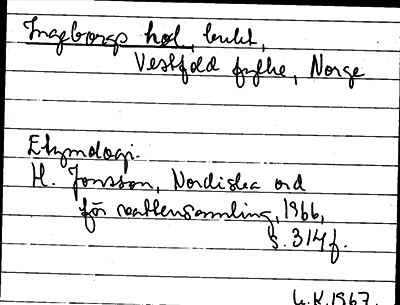 Ingeborgs hol, bukt,
Vestfold fylke, Norge
Etymologi.
H. Jonsson, Nordiska ord
för vattensamling, 1966,
s. 314 f.
K.1967.